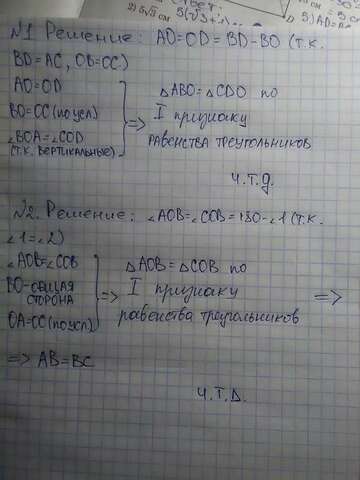 2) 5√3 см
№1 Решение: AO=OD=BD-BO (т.к.
BD=AC, OB=OC)
AO=OD
BO=OC (по усл)
∠BOA=∠COD
(т.к. вертикальные)
=>
△ABO=△CDO по
I признаку
равенства треугольников
ч.т.д.
№2. Решение: ∠AOB=∠COB=180-∠1 (т.к.
∠1=∠2)
∠AOB=∠COB
BO-общая
сторона
OA=OC (по усл)
=>
△AOB=△COB по
I признаку
равенства треугольников
=>
=> AB=BC
ч.т.д.